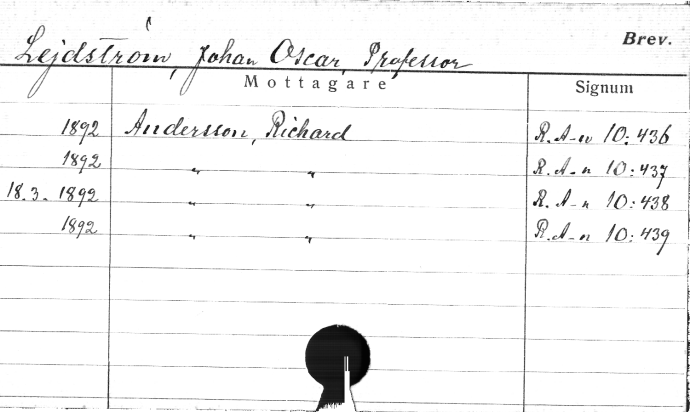 Brev.
Lejdström, Johan Oscar, Professor
Mottagare Signum
1892 Andersson, Richard R. A-n 10:436
1892 " " R. A-n 10:437
18.3. 1892 " " R. A-n 10:438
1892 " " R. A-n 10:439